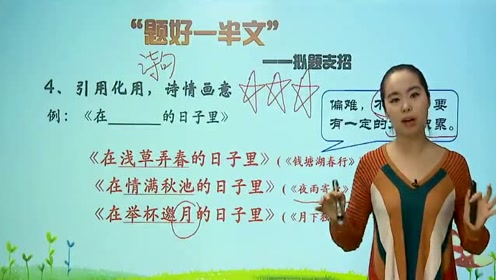 “题好一半文”
诗句
——拟题支招
4、引用化用，诗情画意
例：《在______的日子里》
偏难，不 要
有一定的 累。
《在浅草弄春的日子里》（《钱塘湖春行》
《在情满秋池的日子里》（《夜雨寄
《在举杯邀月的日子里》（《月下